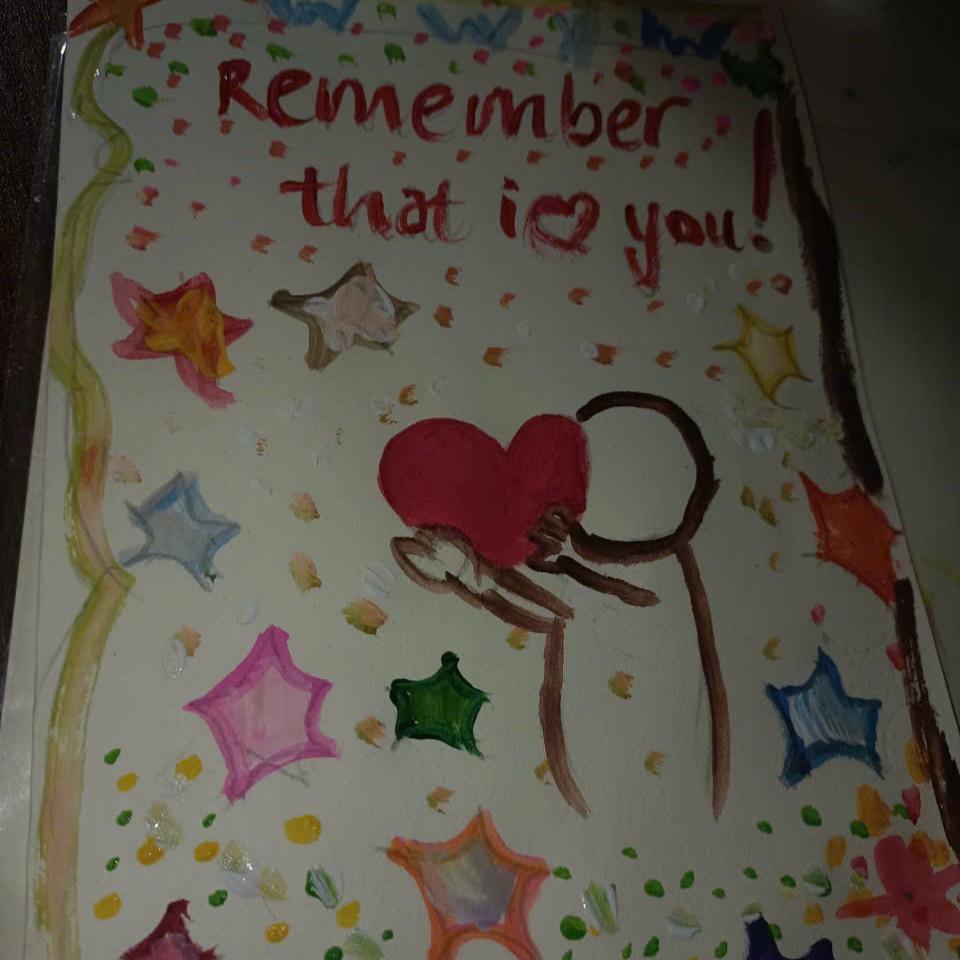 Remember
that i♡ you!